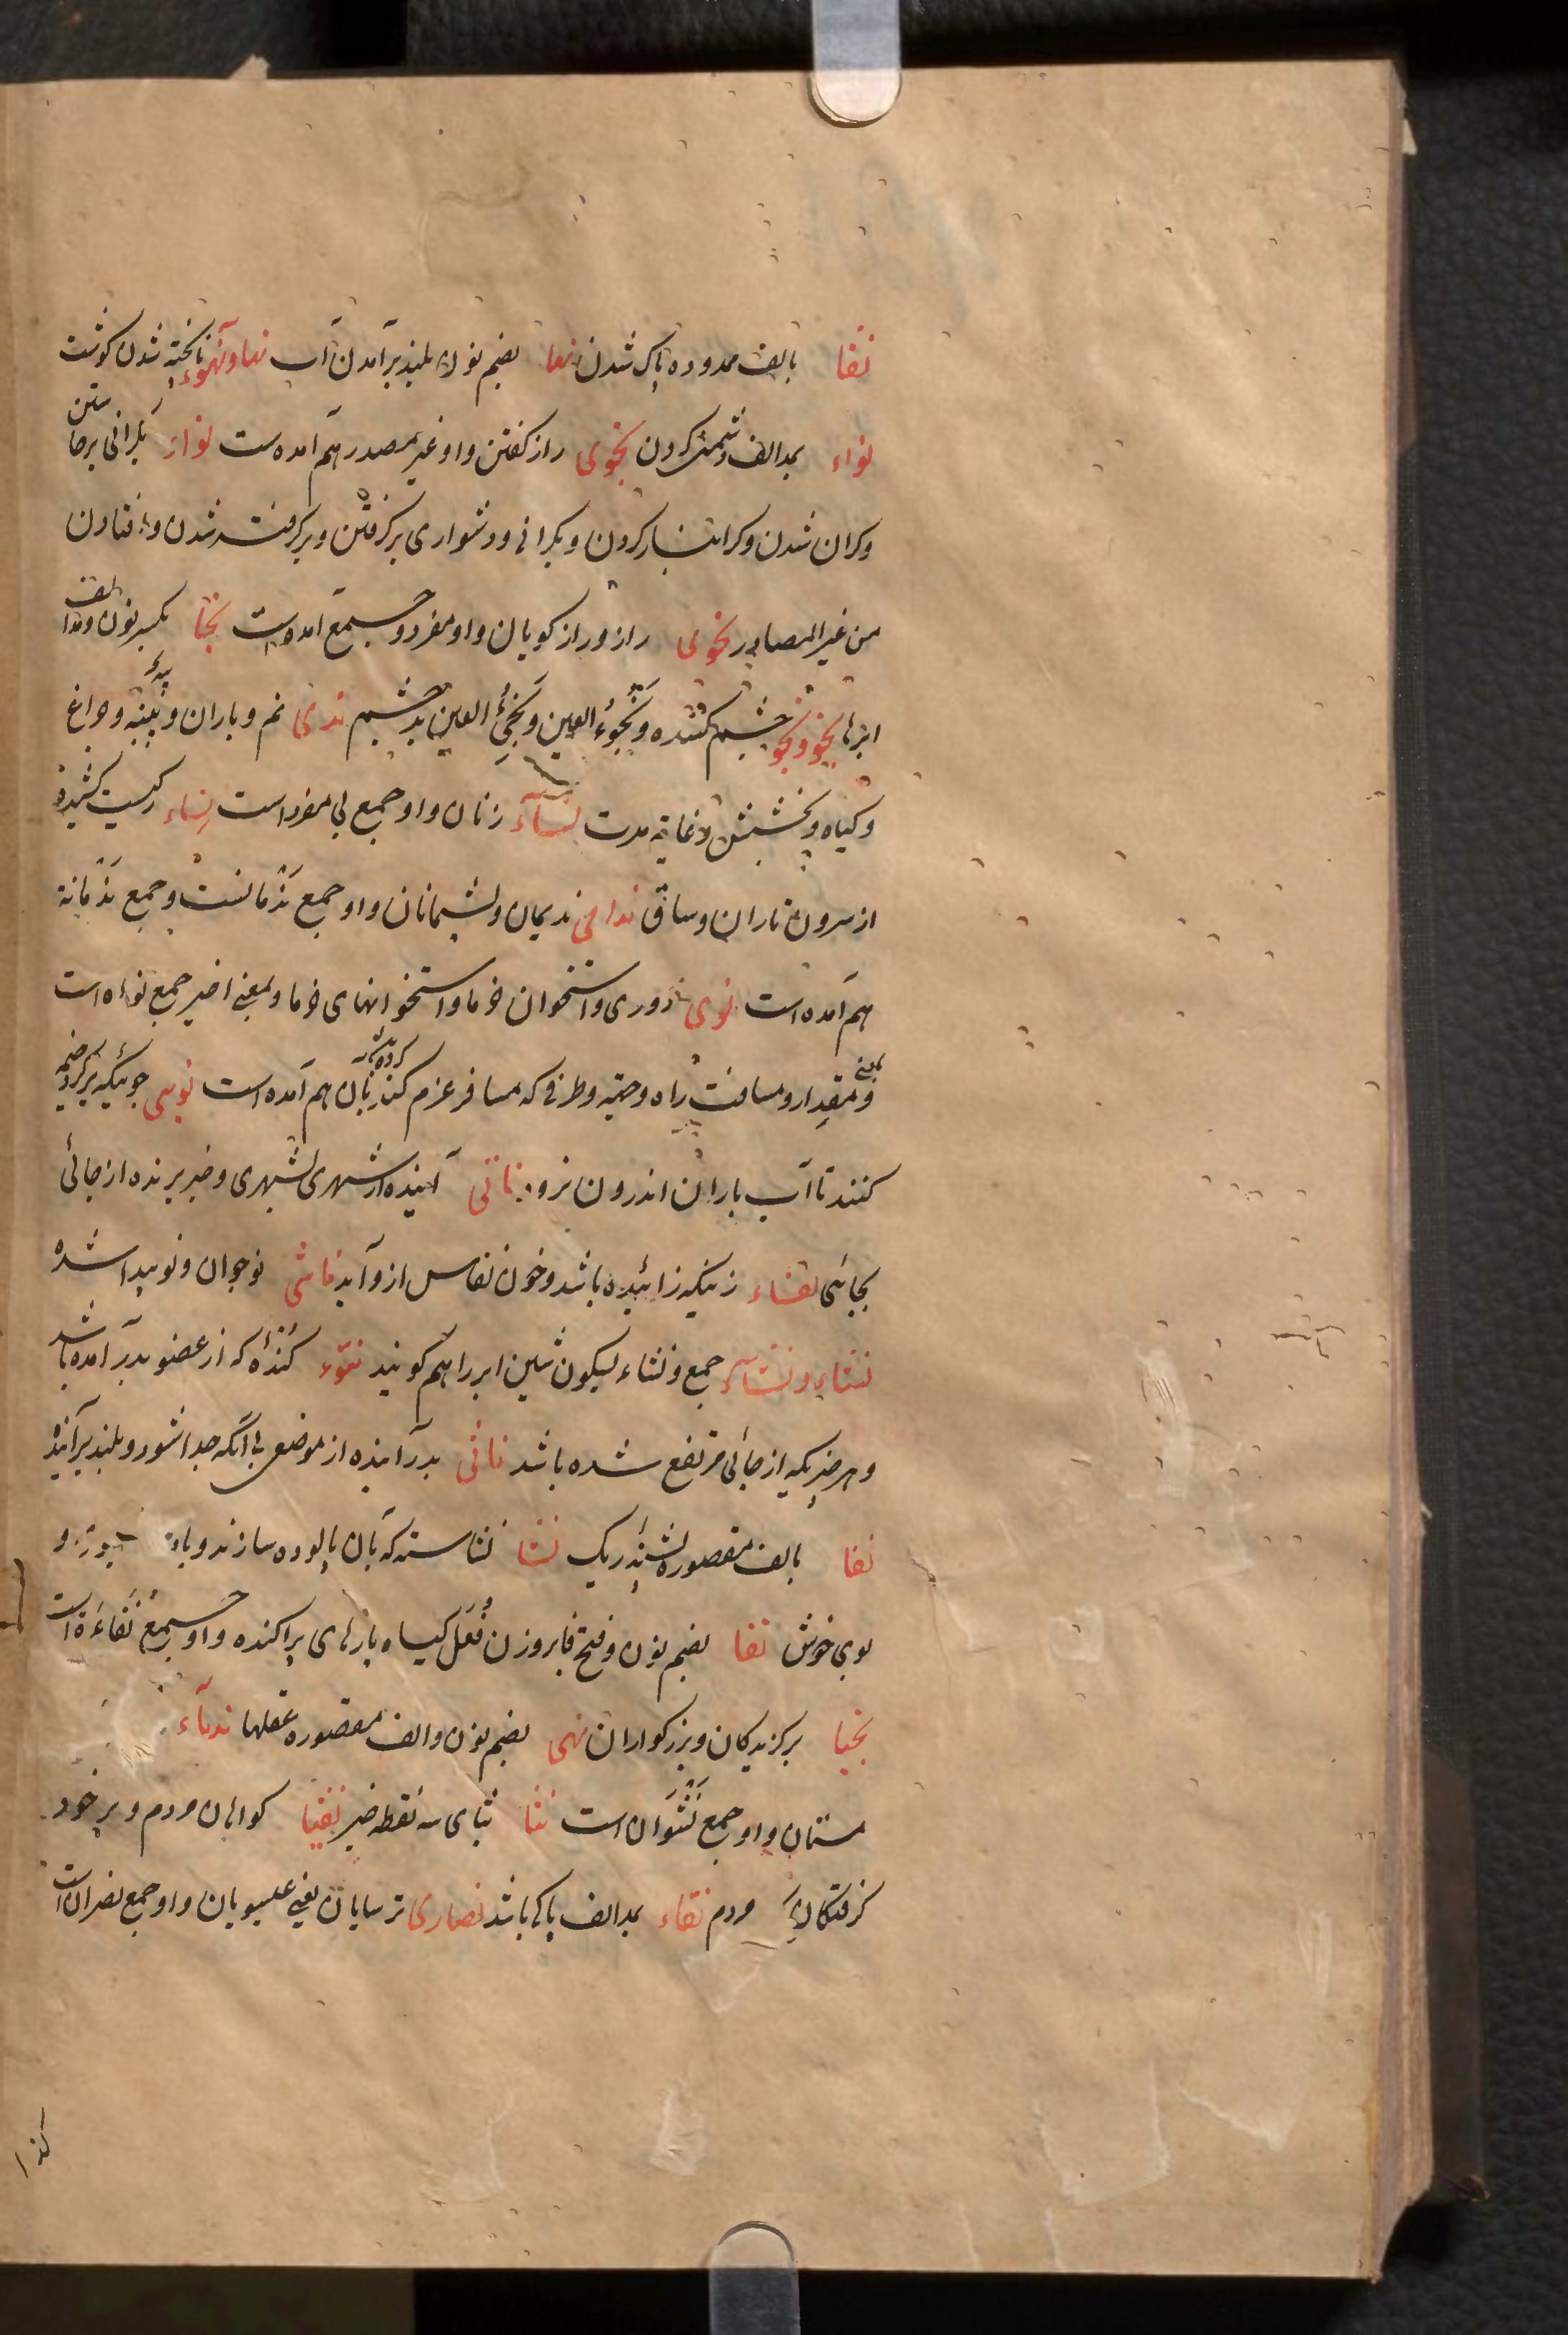 نقا بالف ممدوده پاک شدن نها بضم نون بلند برآمدن آب نهاونهوء ناپخته شدن کوشت
نواء بمد الف دشمنی کردن نجوی راز کفتن واو غیر مصدر هم آمده ست نواء بکرانی برخاستن
وکران شدن وکرانبار کردن وبکرانی ودشواری برکرفتن وبرکرفته شدن وافتادن
من غیر المصادر نجوی راز وراز کویان واو مفرد وجمع آمده است نجا بکسر نون ومد الف
ابرها نجؤ ونجؤ چشم کننده ونجوء العین ونجئ العین بد چشم ندی نم وباران وپیه وچراغ
وکیاه وبخشش وغایة مدت نسآء زنان واو جمع بی مفرد است نساء رکیست کشیده
از سرون تا ران وساق ندامی ندیمان وپشیمانان واو جمع ندمانست وجمع ندمانة
هم آمده است نوی دوری واستخوان خرما واستخوانهای خرما وبمعنی اخیر جمع نواه است
وبمعنی مقدار ومسافت راه وجهة وطرفی که مسافر عزم کند بآن هم آمده است نوی جوئیکه برکرد خیمه
کنند تا آب باران اندرون نرود ناتی آینده از شهری بشهری وخبر برنده از جائی
بجائی نفساء زنیکه زائیده باشد وخون نفاس ازو آید ناشی نوجوان ونو پیدا شده
نشاء ونشآء جمع ونشاء بسکون شین ابر را هم کویند نتوء کنده که از عضو بدر آمده باشد
وهر چیزیکه از جائی مرتفع شده باشد ناتی بدر آینده از موضعی بی آنکه جدا شود وبلند برآینده
نقا بالف مقصوره پشته ریک نشا نشاسته که بآن پالوده سازند و
بوی خوش نفا بضم نون وفتح فا بروزن فعل کیاه پارهای پراکنده واو جمع نفاءة است
نجبا برکزیدکان وبزرکواران نهی بضم نون والف مقصوره عقلها ندماء
مستان واو جمع نشوان است نثا بثای سه نقطه خبر نقبا کواهان مردم وبر خود
کرفتکان مردم نقاء بمد الف پاکی باشد نصاری ترسایان یعنی عیسویان واو جمع نصران است
کذا